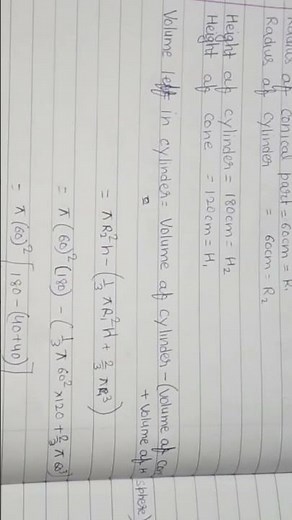 Radius of Conical part = 60cm = R₁
Radius of cylinder = 60cm = R₂
Height of cylinder = 180cm = H₂
Height of cone = 120cm = H₁
Volume left in cylinder = Volume of cylinder - (Volume of Con
+ Volume of H
sphere)
=
= πR₂²h - (1/3 πR₁²H + 2/3 πR³)
= π(60)²(180) - (1/3 π 60² × 120 + 2/3 π
= π(60)² [180 - (40+40)]